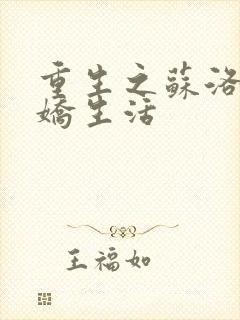 重生之蘇洛
嬌生活
王福如